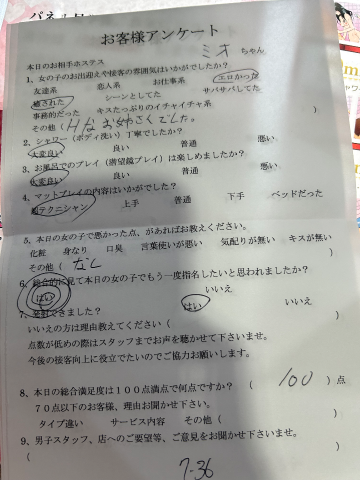 お客様アンケート
本日のお相手ホステス ミオ ちゃん
1、女の子のお出迎えや接客の雰囲気はいかがでしたか?
友達系 恋人系 お仕事系 エロかった
癒された シーンとしてた サバサバしてた
事務的だった キスたっぷりのイチャイチャ系
その他(Hなお姉さんでした。)
2、シャワー(ボディ洗い)丁寧でしたか?
大変良い 良い 普通 悪い
3、お風呂でのプレイ(潜望鏡プレイ)は楽しめましたか?
大変良い 良い 普通 悪い
4、マットプレイの内容はいかがでした?
超テクニシャン 上手 普通 下手 ベッドだった
5、本日の女の子で悪かった点、があればお教えください。
化粧 身なり 口臭 言葉使いが悪い 気配りが無い キスが無い
その他(なし
6、総合的に見て本日の女の子でもう一度指名したいと思われましたか?
はい いいえ
7、できました? はい いいえ
いいえの方は理由教えてください(
点数が低めの際はスタッフまでお声を聴かせて下さいませ。
今後の接客向上に役立でたいのでご協力お願いします。
8、本日の総合満足度は100点満点で何点ですか? (100)点
70点以下のお客様、理由お聞かせ下さい。
タイプ違い サービス内容 その他(
9、男子スタッフ、店へのご要望等、ご意見をお聞かせ下さいませ。
(
7-36